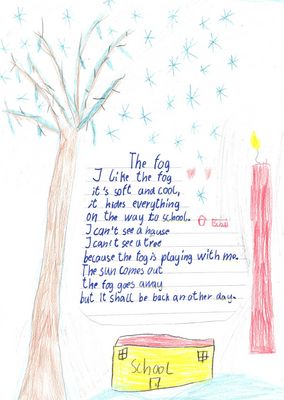 The fog
I like the fog
it's soft and cool,
it hides everything
on the way to school.
I can't see a hause
I can't see a tree
because the fog is playing with me.
The sun comes out
the fog goes away
but it shall be back another day.
School